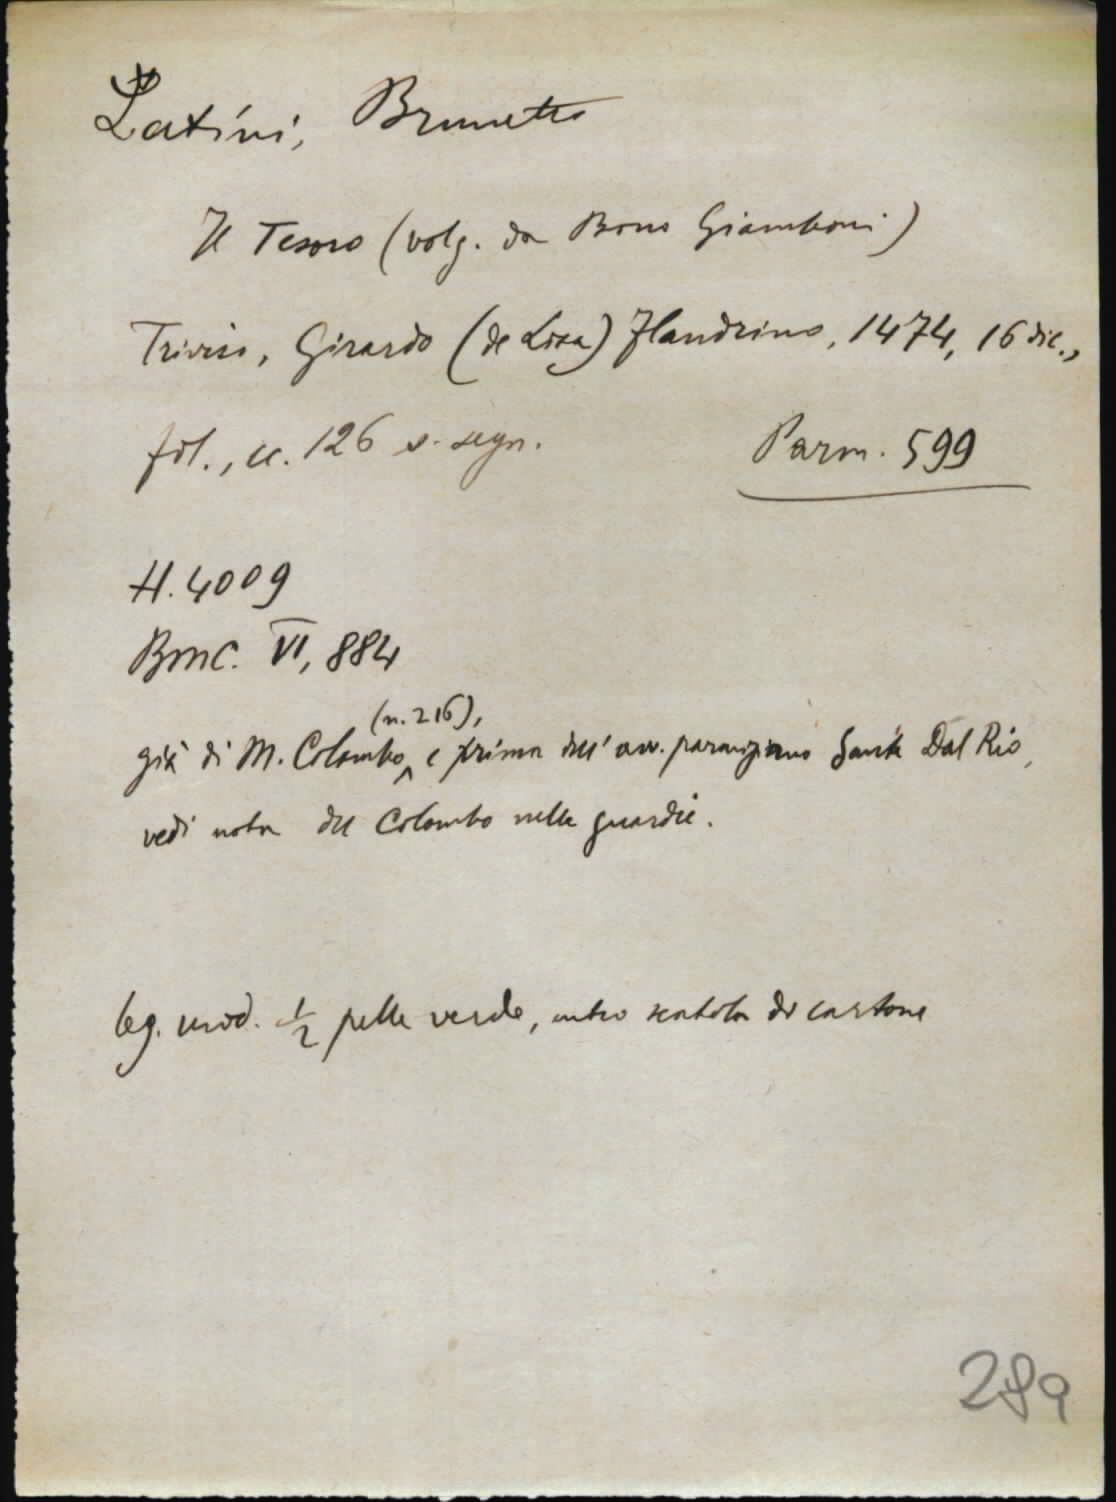 Latini, Brunetto
Il Tesoro (volg. da Bono Giamboni)
Treviso, Girardo (de Lisa) Flandrino, 1474, 16 dic.,
fol., cc. 126 s. segn.
Parm. 599
H. 4009
BMC. VI, 884
(n. 216),
già di M. Colombo e prima dell' avv. parmigiano Sante Dal Rio,
vedi nota del Colombo nelle guardie.
leg. mod. 1/2 pelle verde, entro scatola di cartone
289